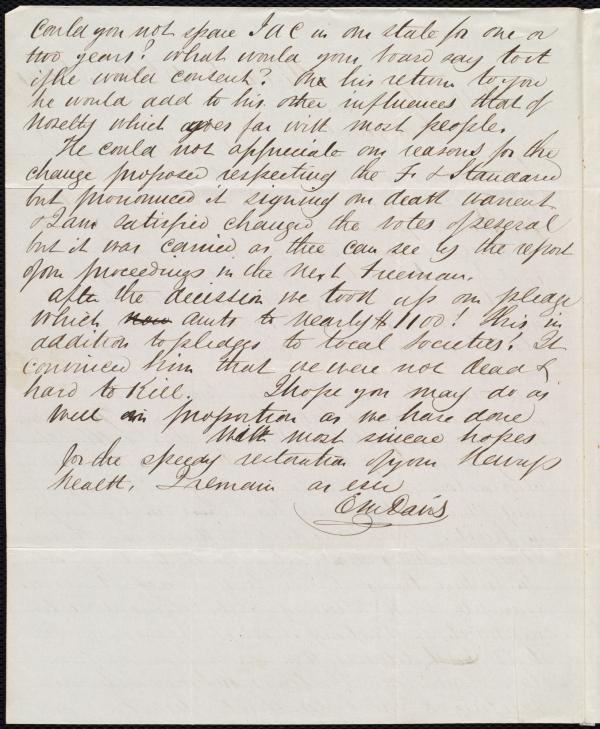 Could you not spare J A C in our state for one or
two years? What would your board say to it
if he would consent? On his return to you
he would add to his other influences that of
novelty which goes far with most people.
He could not appreciate our reasons for the
change proposed respecting the Fr & Standard
but pronounced it signing our death warrent
& I am satisfied changed the votes of several
but it was carried as thee can see by the report
of our proceedings in the next Freeman.
After the decission we took up our pledge
which now amts to nearly $1100! This in
addition to pledges to local societies! It
convinced him that we were not dead &
hard to Kill. I hope you may do as
well in proportion as we have done
With most sincere hopes
for the speedy restoration of your Henrys
health, I remain as ever
E M Davis